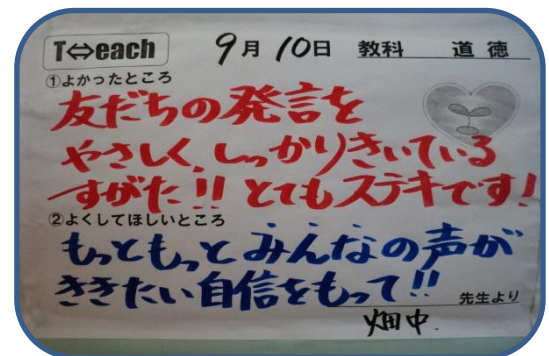 T⇔each 9月10日 教科 道徳
①よかったところ
友だちの発言を
やさしく、しっかりきいている
すがた!!とてもステキです!
②よくしてほしいところ
もっともっとみんなの声が
ききたい自信をもって!!
先生より
畑中.